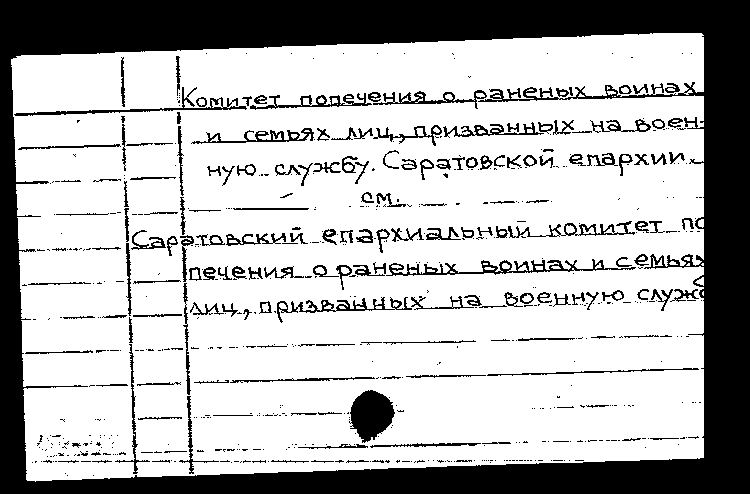 Комитет попечения о раненых воинах
и семьях лиц, призванных на воен-
ную службу. Саратовской епархии.
см.
Саратовский епархиальный комитет по
печения о раненых воинах и семьях
лиц, призванных на военную служб